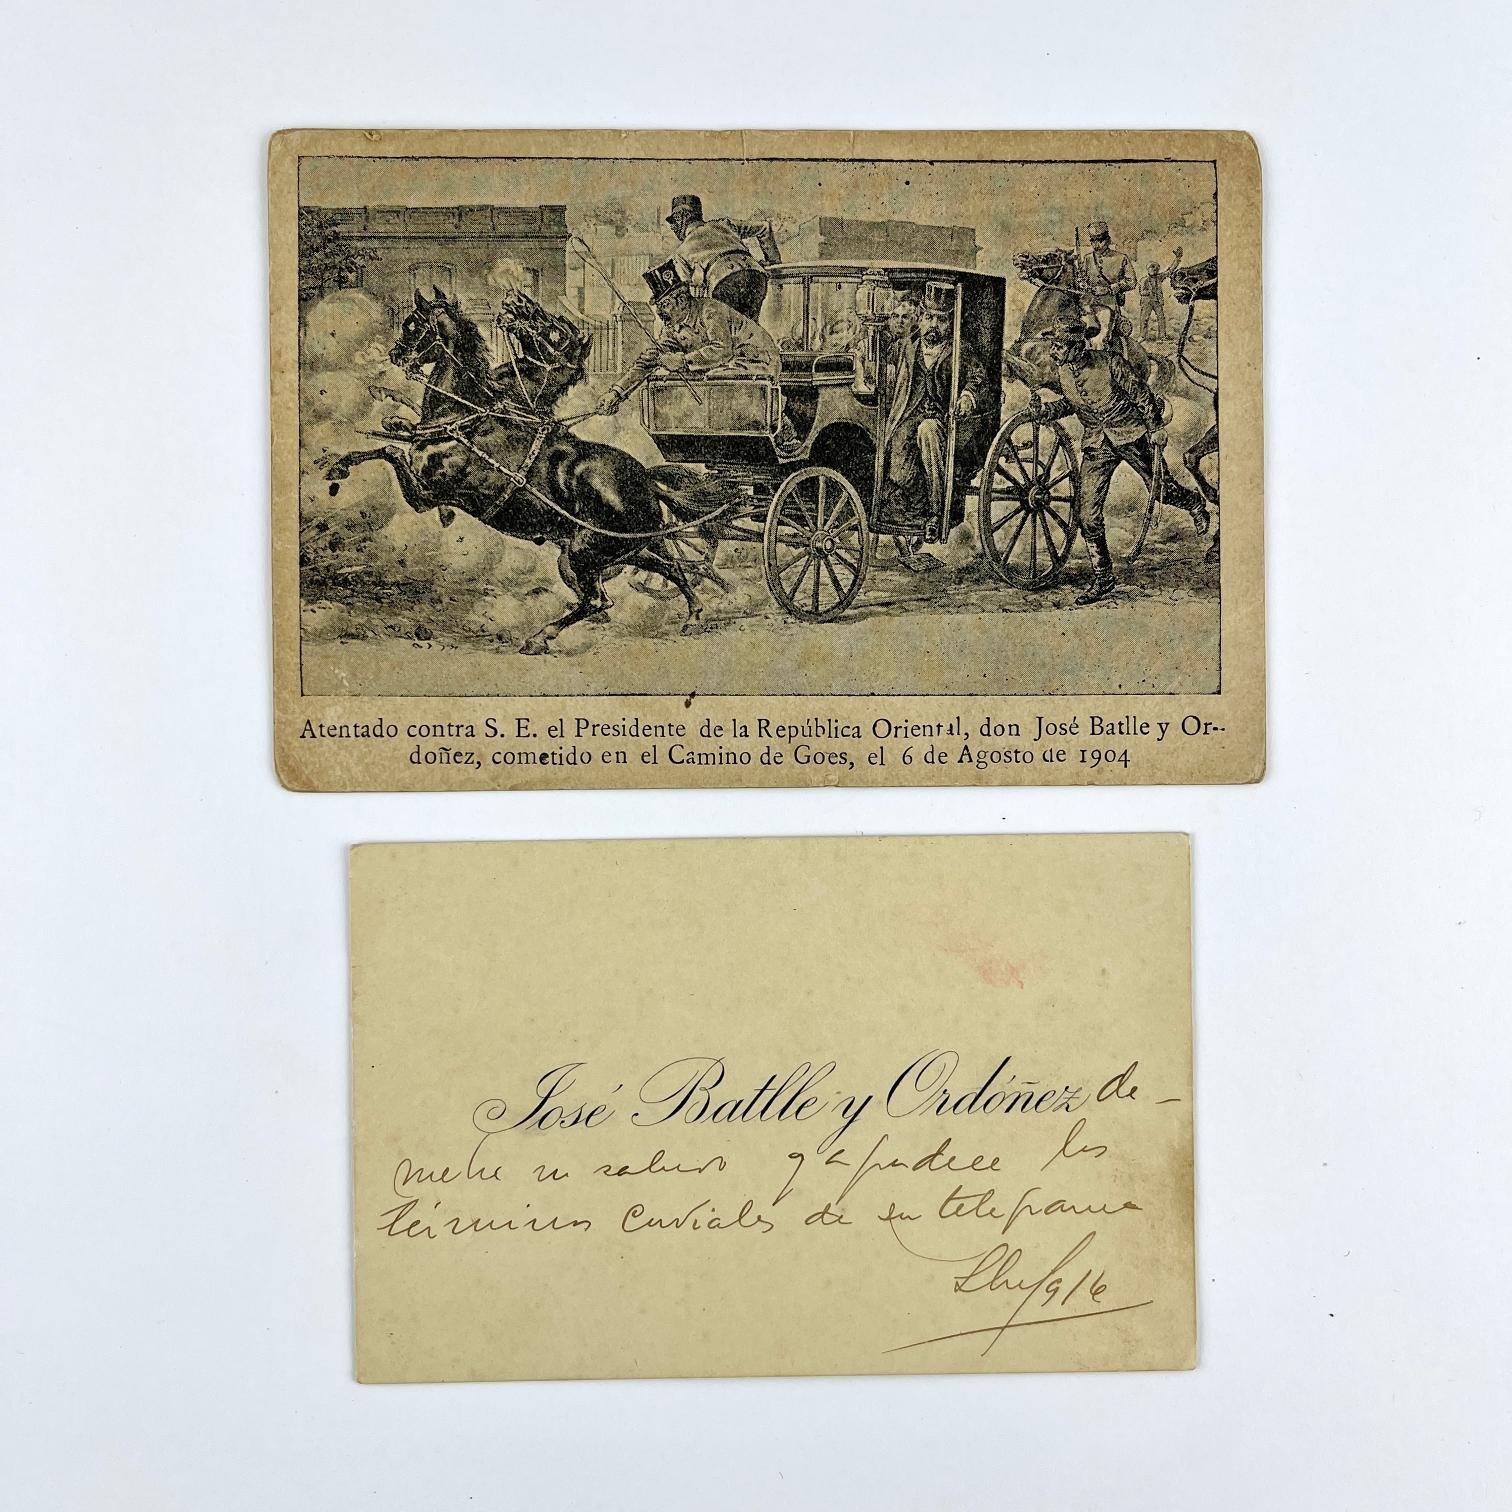 Atentado contra S. E. el Presidente de la República Oriental, don José Batlle y Or-
doñez, cometido en el Camino de Goes, el 6 de Agosto de 1904
José Batlle y Ordóñez de-
vuelve su saludo y agradece los
términos cordiales de su telegrama
916